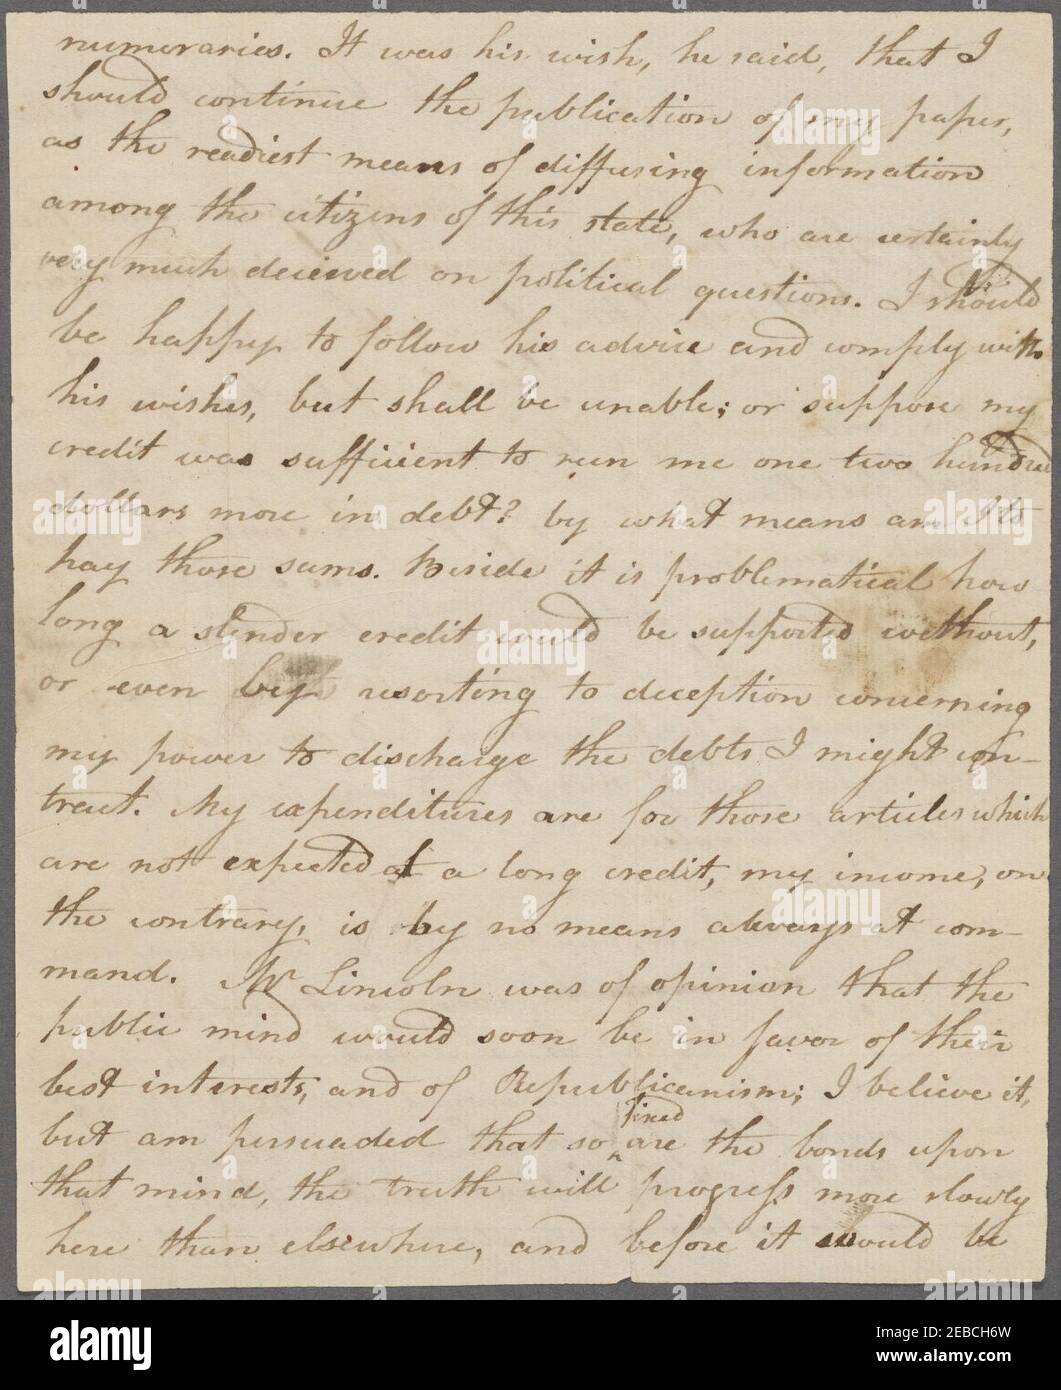 numeraries. It was his wish, he said, that I
should continue the publication of my paper,
as the readiest means of diffusing information
among the citizens of this state, who are certainly
very much deceived on political questions. I should
be happy to follow his advice and comply with
his wishes, but shall be unable; or suppose my
credit was sufficient to run me one two hundred
dollars more in debt? by what means am I to
pay those sums. Beside it is problematical how
long a slender credit would be supported without,
or even by resorting to deception concerning
my power to discharge the debts I might con-
tract. My expenditures are for those articles which
are not expected at a long credit, my income, on
the contrary, is by no means always at com-
mand. Mr Lincoln was of opinion that the
public mind would soon be in favor of their
best interests, and of Republicanism; I believe it,
but am persuaded that so ‸fixed are the bonds upon
that mind, the truth will progress more slowly
here than elsewhere, and before it would be
alamy
Image ID: 2EBCH6W
www.alamy.com